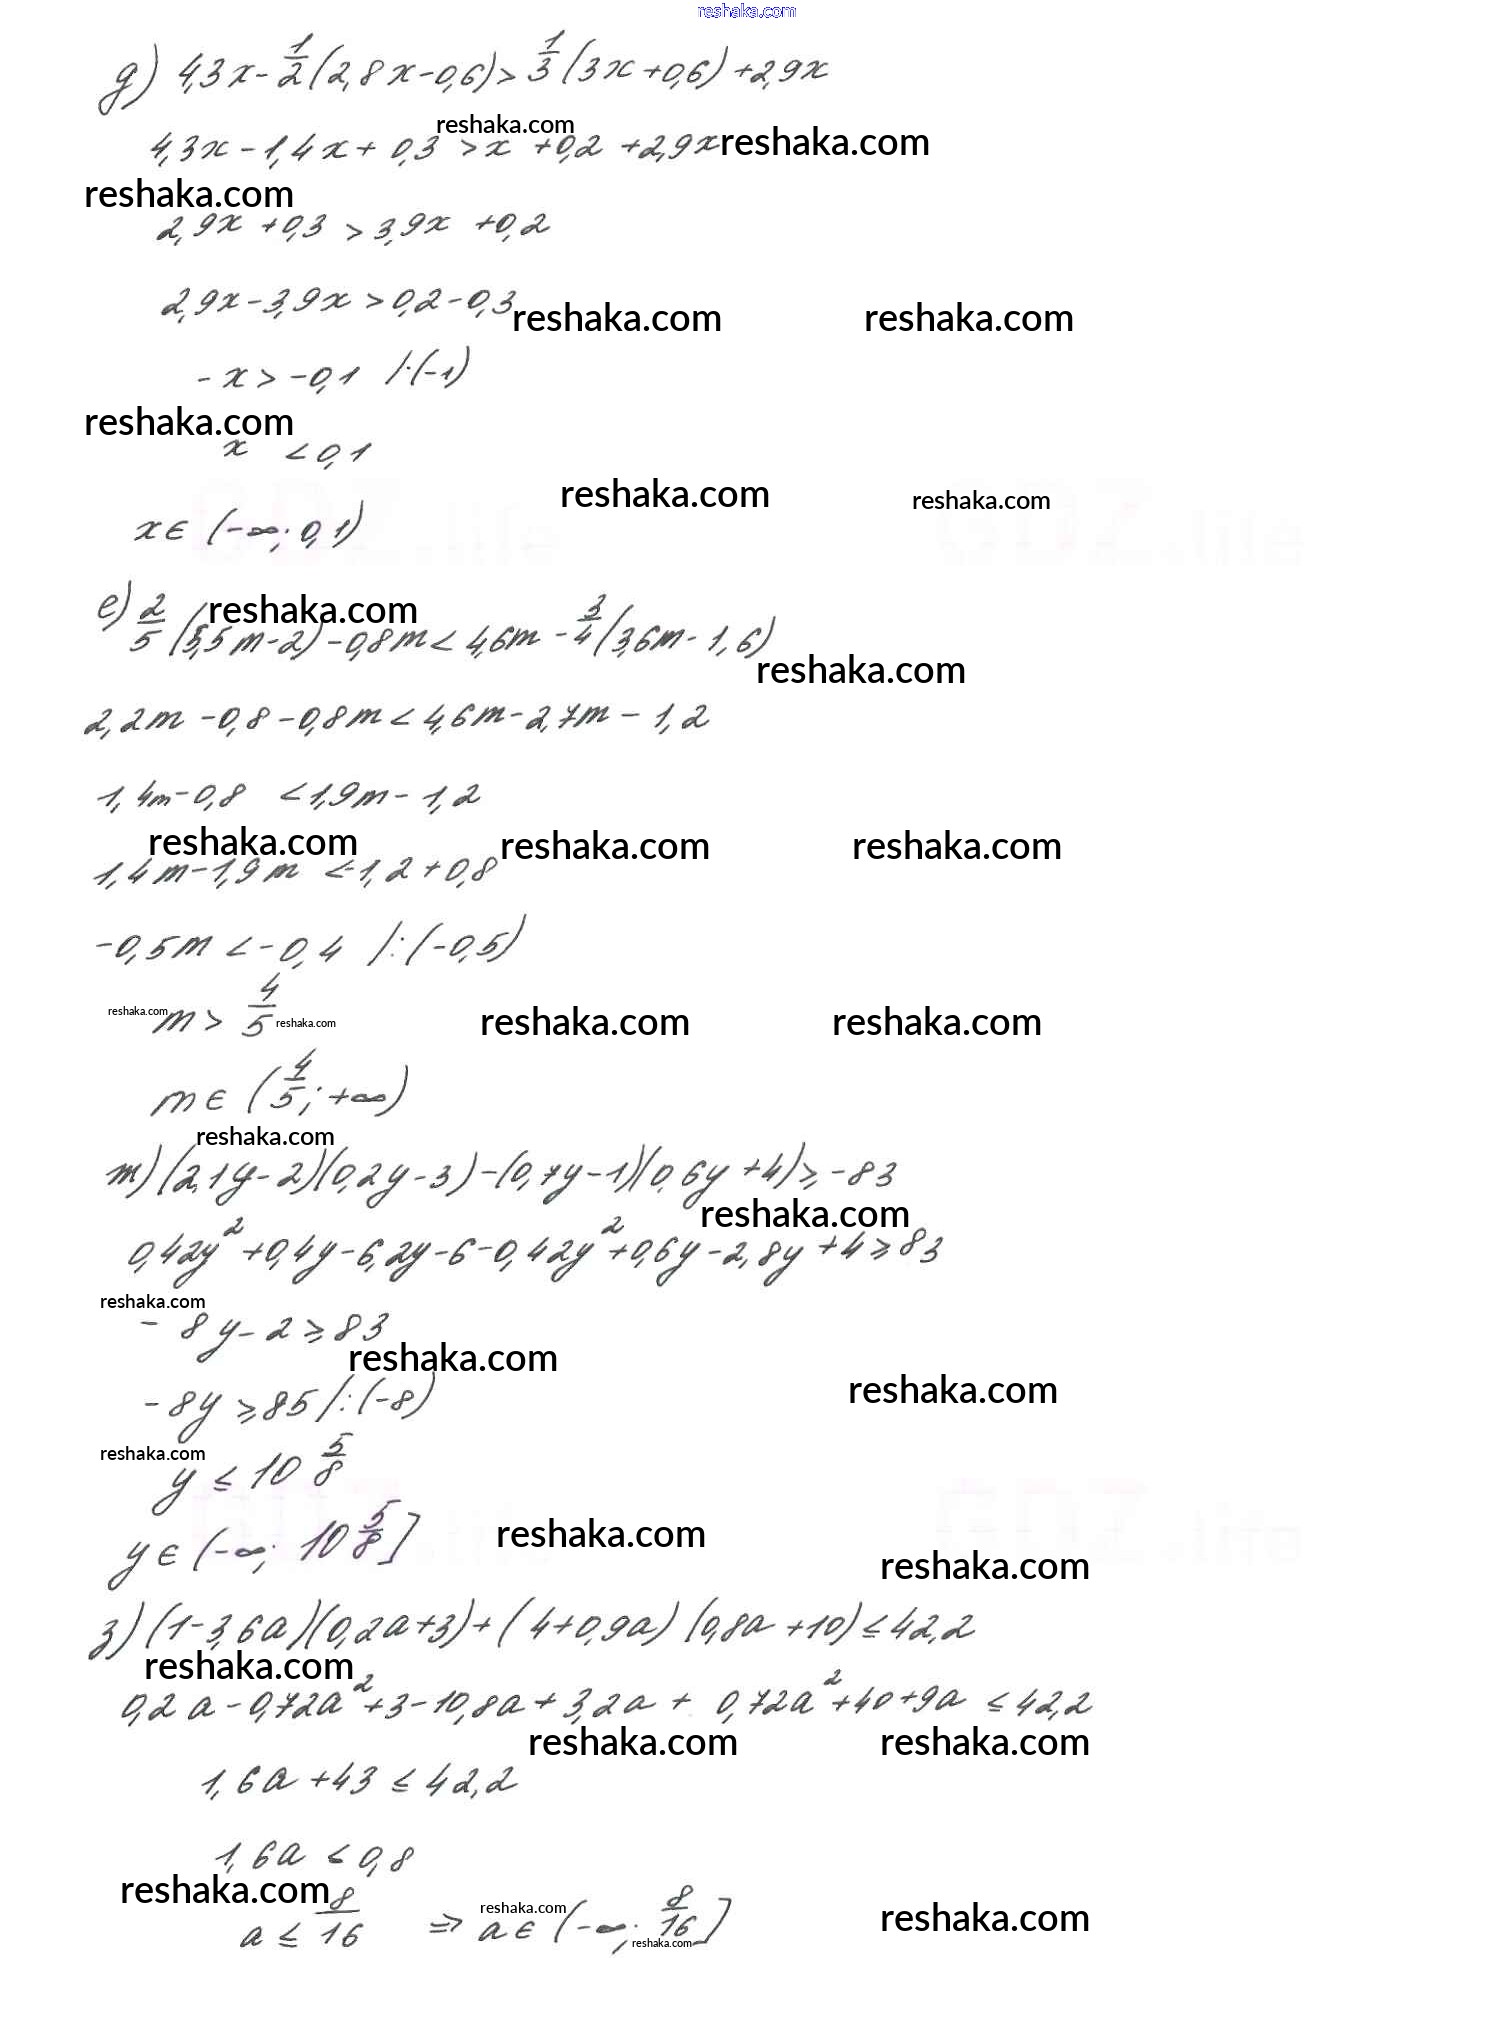 reshaka.com
д) 4,3x - 1/2 (2,8x - 0,6) > 1/3 (3x + 0,6) + 2,9x
reshaka.com
4,3x - 1,4x + 0,3 > x + 0,2 + 2,9x reshaka.com
reshaka.com
2,9x + 0,3 > 3,9x + 0,2
2,9x - 3,9x > 0,2 - 0,3 reshaka.com reshaka.com
- x > -0,1 /·(-1)
reshaka.com
x < 0,1
reshaka.com reshaka.com
x ∈ (-∞; 0,1)
GDZ.life GDZ.life
reshaka.com
е) 2/5 (5,5m - 2) - 0,8m < 4,6m - 3/4 (3,6m - 1,6)
reshaka.com
2,2m - 0,8 - 0,8m < 4,6m - 2,7m - 1,2
1,4m - 0,8 < 1,9m - 1,2
reshaka.com reshaka.com reshaka.com
1,4m - 1,9m < -1,2 + 0,8
-0,5m < -0,4 /:(-0,5)
reshaka.com m > 4/5 reshaka.com reshaka.com reshaka.com
m ∈ (4/5; +∞)
reshaka.com
т) (2,1y - 2)(0,2y - 3) - (0,7y - 1)(0,6y + 4) ≥ -83
reshaka.com
0,42y² + 0,4y - 6,2y - 6 - 0,42y² + 0,6y - 2,8y + 4 ≥ 83
reshaka.com
- 8y - 2 ≥ 83
reshaka.com
- 8y ≥ 85 /:(-8) reshaka.com
reshaka.com
y ≤ 10 5/8
y ∈ (-∞; 10 5/8] reshaka.com
GDZ.life GDZ.life
reshaka.com
з) (1 - 3,6a)(0,2a + 3) + (4 + 0,9a) (0,8a + 10) ≤ 42,2
reshaka.com
0,2a - 0,72a² + 3 - 10,8a + 3,2a + 0,72a² + 40 + 9a ≤ 42,2
reshaka.com reshaka.com
1,6a + 43 ≤ 42,2
1,6a < 0,8
reshaka.com
a ≤ 8/16 ⇒ reshaka.com a ∈ (-∞; 8/16] reshaka.com reshaka.com